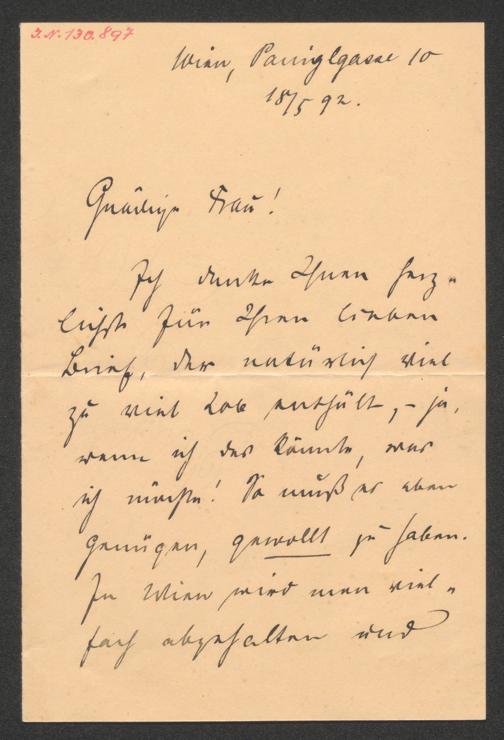 I.N. 130.897
Wien, Paniglgasse 10
18/5 92.
Gnädige Frau!
Ich danke Ihnen herz-
lichst für Ihren lieben
Brief, der natürlich viel
zu viel Lob enthält, – ja,
wenn ich das könnte, was
ich möchte! So muß es eben
genügen, gewollt zu haben.
In Wien wird man viel-
fach abgehalten und